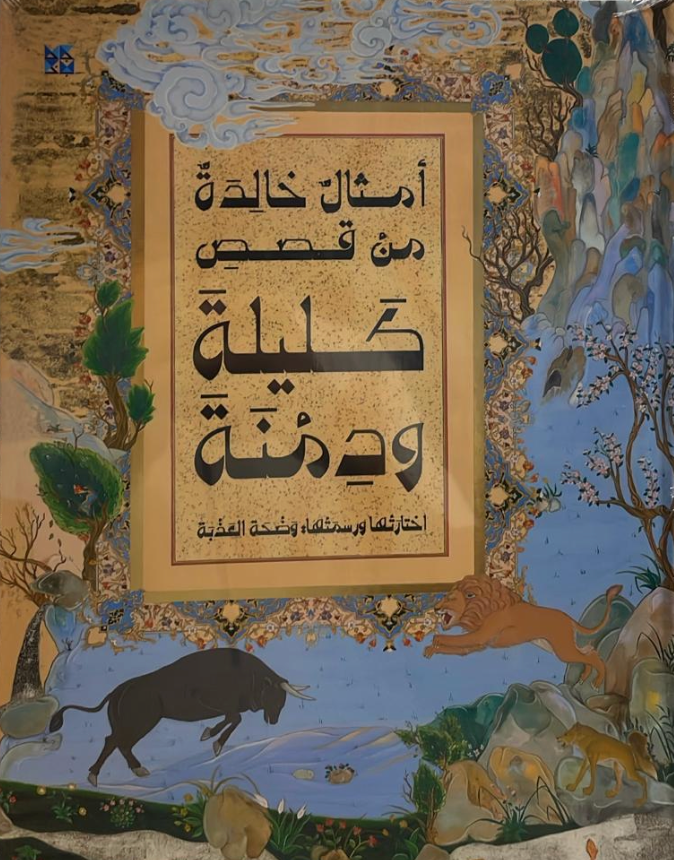 أمثالٌ خالِدَةٌ
منْ قصصِ
كَليلَةَ
ودِمْنَةَ
اختارتْها ورسمتْها، وضْحة العذْبَة